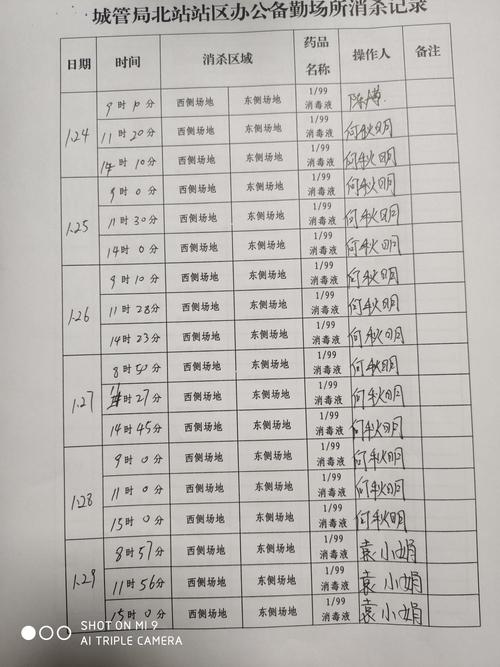 城管局北站站区办公备勤场所消杀记录
日期 时间 消杀区域 药品名称 操作人 备注
1.24 9时10分 西侧场地 东侧场地 1/99消毒液 陈
11时20分 西侧场地 东侧场地 1/99消毒液 何秋明
14时10分 西侧场地 东侧场地 1/99消毒液 何秋明
1.25 9时0分 西侧场地 东侧场地 1/99消毒液 何秋明
11时30分 西侧场地 东侧场地 1/99消毒液 何秋明
14时0分 西侧场地 东侧场地 1/99消毒液 何秋明
1.26 9时10分 西侧场地 东侧场地 1/99消毒液 何秋明
11时28分 西侧场地 东侧场地 1/99消毒液 何秋明
14时23分 西侧场地 东侧场地 1/99消毒液 何秋明
1.27 8时50分 西侧场地 东侧场地 1/99消毒液 何秋明
11时27分 西侧场地 东侧场地 1/99消毒液 何秋明
14时45分 西侧场地 东侧场地 1/99消毒液 何秋明
1.28 9时0分 西侧场地 东侧场地 1/99消毒液 何秋明
11时0分 西侧场地 东侧场地 1/99消毒液 何秋明
15时0分 西侧场地 东侧场地 1/99消毒液 何秋明
1.29 8时57分 西侧场地 东侧场地 1/99消毒液 袁小娟
11时56分 西侧场地 东侧场地 1/99消毒液 袁小娟
15时0分 西侧场地 东侧场地 1/99消毒液 袁小娟
SHOT ON MI 9
AI TRIPLE CAMERA